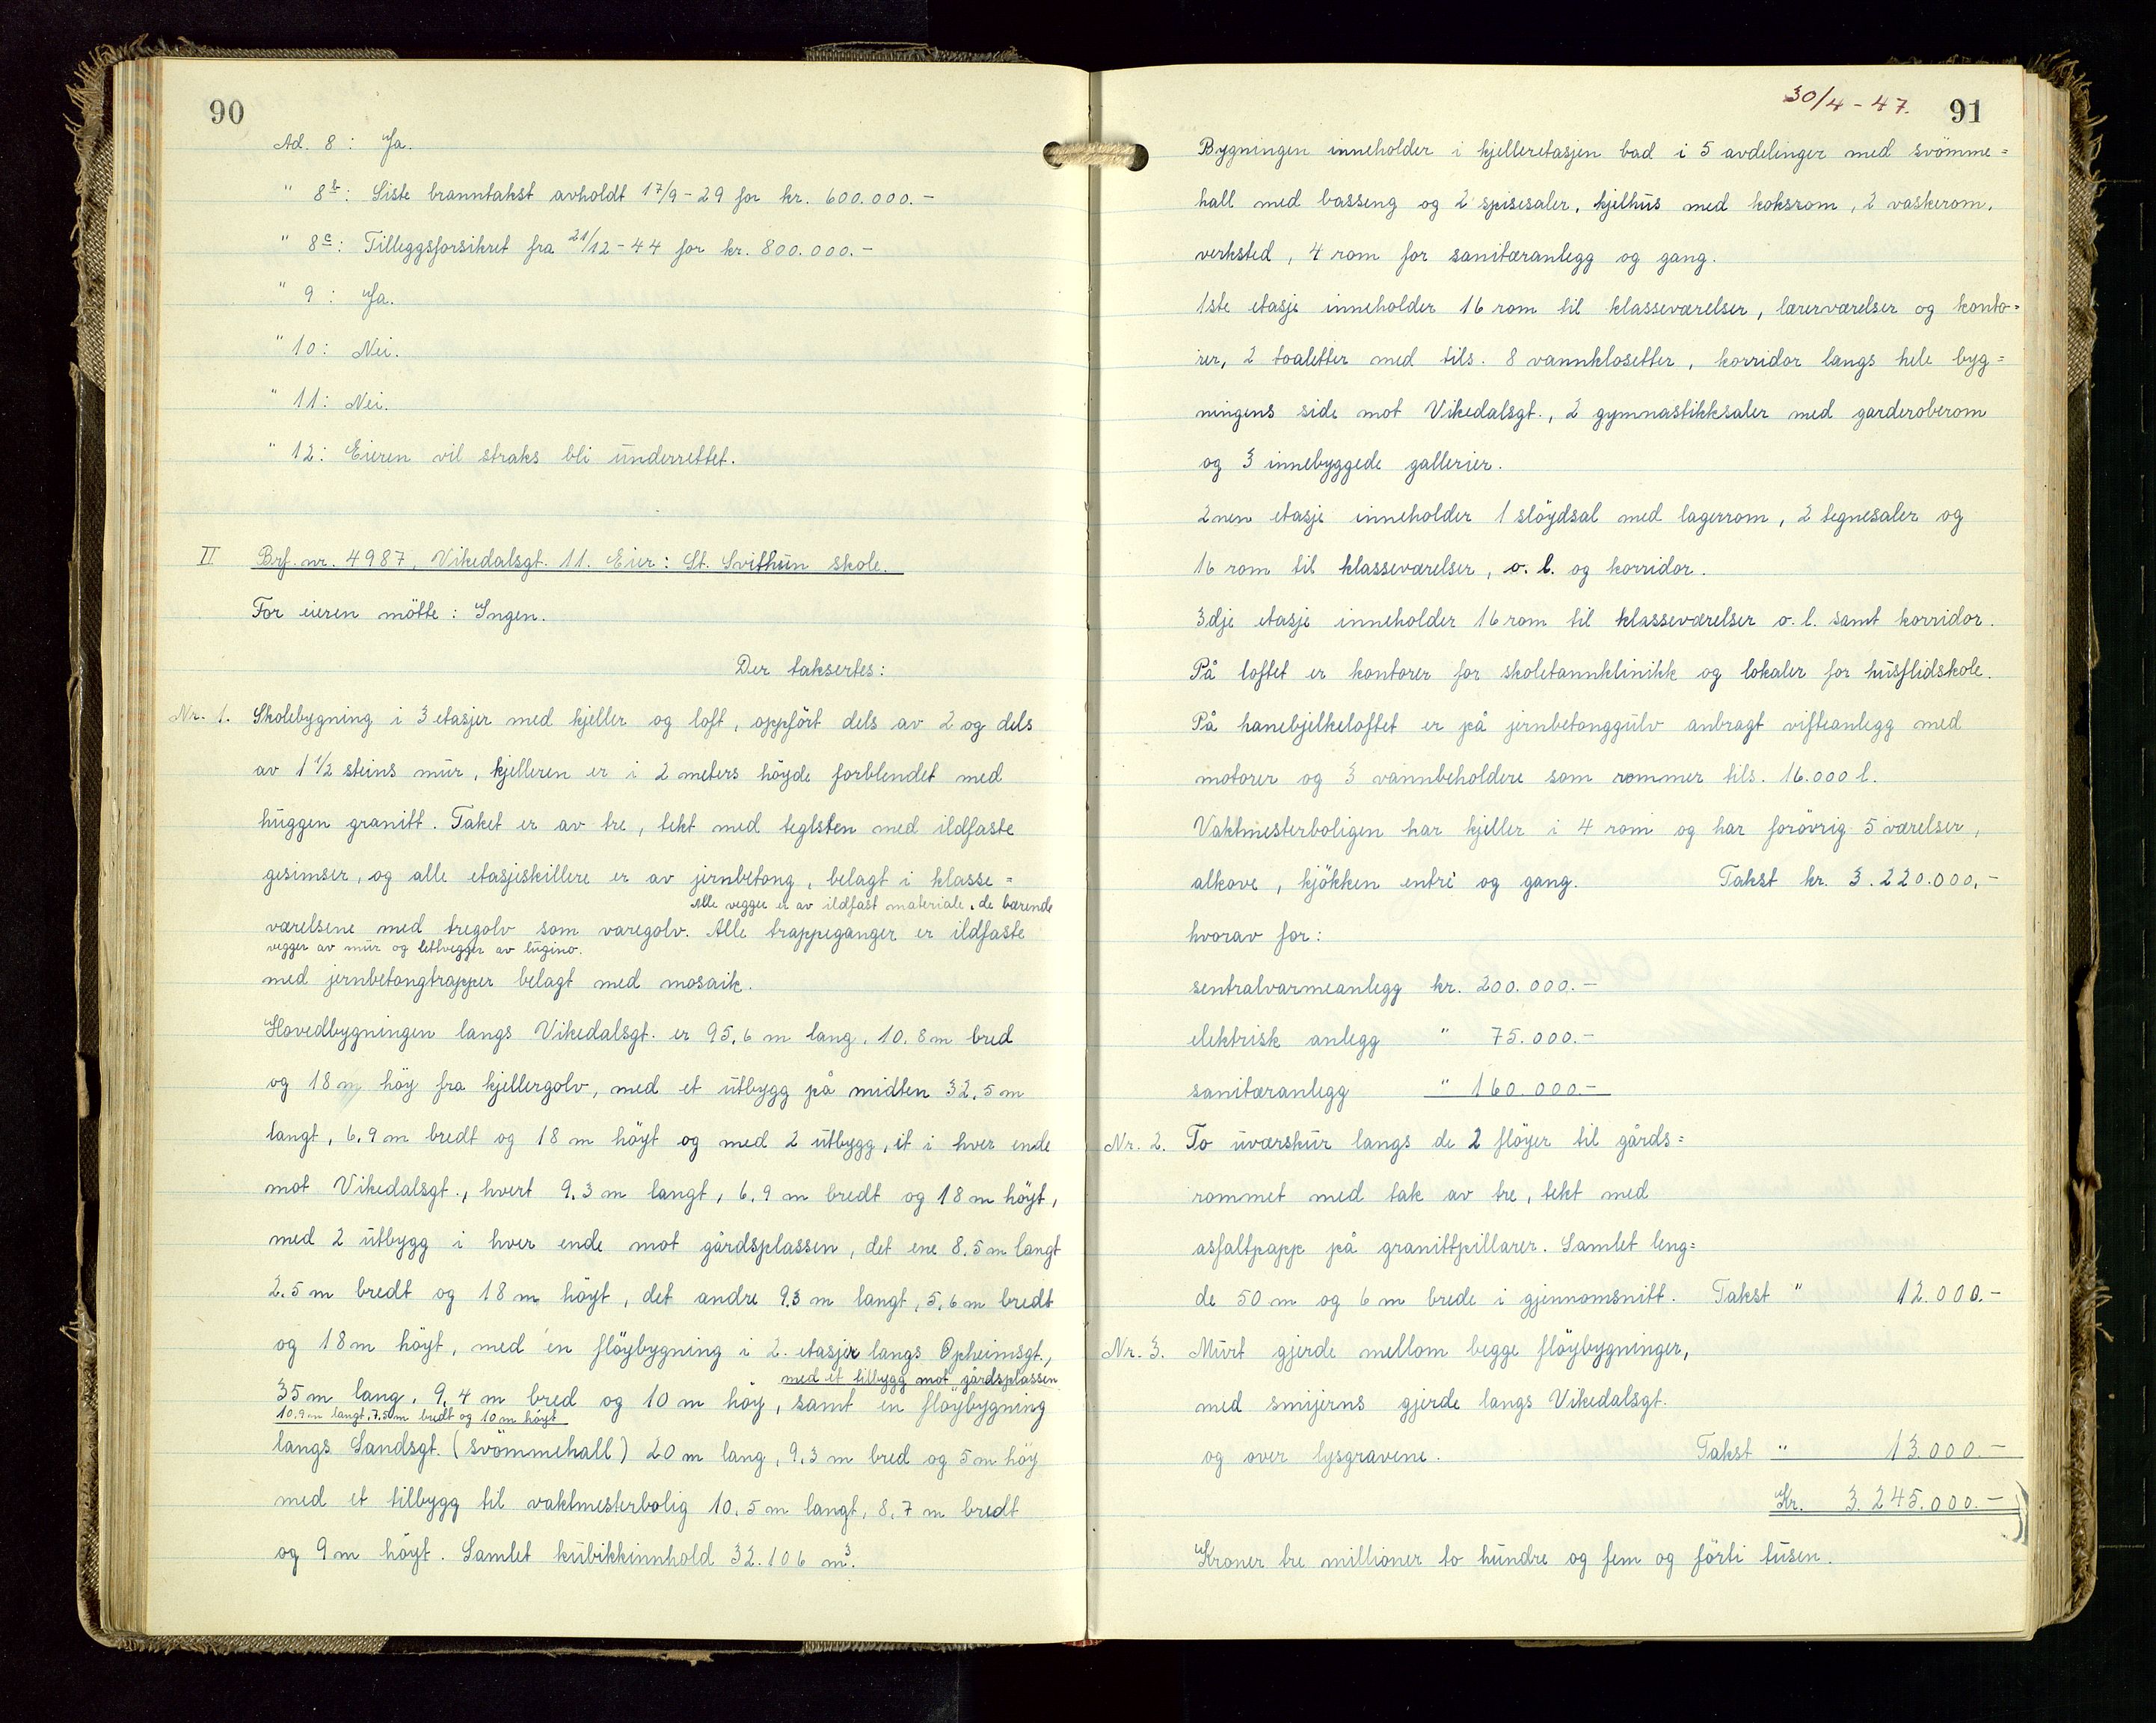 90
Ad. 8 : Ja.
" 8b: Siste branntakst avholdt 17/9 - 29 for kr. 600.000.-
" 8c: Tilleggsforsikret fra 21/12 - 44 for kr. 800.000.-
" 9 : Ja.
" 10: Nei.
" 11: Nei.
" 12: Eieren vil straks bli underrettet.
II Brf. nr. 4987, Vikedalsgt. 11. Eier: St. Svithun skole.
For eieren mötte: Ingen.
Der taksertes:
Nr. 1. Skolebygning i 3 etasjer med kjeller og loft, oppfört dels av 2 og dels
av 1 1/2 steins mur, kjelleren er i 2 meters höyde forblendet med
huggen granitt. Taket er av tre, tekt med teglsten med ildfaste
gesimser, og alle etasjeskillere er av jernbetong, belagt i klasse=
Alle vegger er av ildfast materiale, de bærende
værelsene med tregolv som varegolv. Alle trappeganger er ildfaste
vegger av mur og lettvegger av lugino.
med jernbetongtrapper belagt med mosaik.
Hovedbygningen langs Vikedalsgt. er 95,6 m lang, 10.8 m bred
og 18 m höy fra kjellergolv, med et utbygg på midten 32,5 m
langt, 6,9 m bredt og 18 m höyt og med 2 utbygg, et i hver ende
mot Vikedalsgt., hvert 9,3 m langt, 6,9 m bredt og 18 m höyt,
med 2 utbygg i hver ende mot gårdsplassen, det ene 8.5 m langt
2.5 m bredt og 18 m höyt, det andre 9,3 m langt, 5,6 m bredt
og 18 m höyt, med en flöybygning i 2. etasjer langs Opheimsgt.,
med et tilbygg mot gårdsplassen
35 m lang, 9,4 m bred og 10 m höy, samt en flöybygning
10.9 m langt, 7.5 m bredt og 10 m höyt
langs Sandsgt. (svömmehall) 20 m lang, 9,3 m bred og 5 m höy
med et tilbygg til vaktmesterbolig 10.5 m langt, 8,7 m bredt
og 9 m höyt. Samlet kubikkinnhold 32.106 m3.
30/4 - 47. 91
Bygningen inneholder i kjelleretasjen bad i 5 avdelinger med svömme=
hall med basseng og 2 spisesaler, kjelhus med koksrom, 2 vaskerom,
verksted, 4 rom for sanitæranlegg og gang.
1ste etasje inneholder 16 rom til klasseværelser, lærerværelser og konto=
rer, 2 toaletter med tils. 8 vannklosetter, korridor langs hele byg=
ningens side mot Vikedalsgt., 2 gymnastikksaler med garderoberom
og 3 innebyggede gallerier.
2nen etasje inneholder 1 slöydsal med lagerrom, 2 tegnesaler og
16 rom til klasseværelser, o. l. og korridor.
3dje etasje inneholder 16 rom til klasseværelser o. l. samt korridor.
På loftet er kontorer for skoletannklinikk og lokaler for husflidskole.
På hanebjelkeloftet er på jernbetonggulv anbragt vifteanlegg med
motorer og 3 vannbeholdere som rommer tils. 16.000 l.
Vaktmesterboligen har kjeller i 4 rom og har forövrig 5 værelser,
alkove, kjökken entre og gang. Takst kr. 3.220.000,-
hvorav for:
sentralvarmeanlegg kr. 200.000.-
elektrisk anlegg " 75.000.-
sanitæranlegg " 160.000.-
Nr. 2. To uværskur langs de 2 flöyer til gårds=
rommet med tak av tre, tekt med
asfaltpapp på granittpillarer. Samlet leng=
de 50 m og 6 m brede i gjennomsnitt. Takst " 12.000.-
Nr. 3. Murt gjerde mellom begge flöybygninger,
med smijerns gjerde langs Vikedalsgt.
og over lysgravene. Takst " 13.000.-
Kr. 3.245.000.-
Kroner tre millioner to hundre og fem og förti tusen.